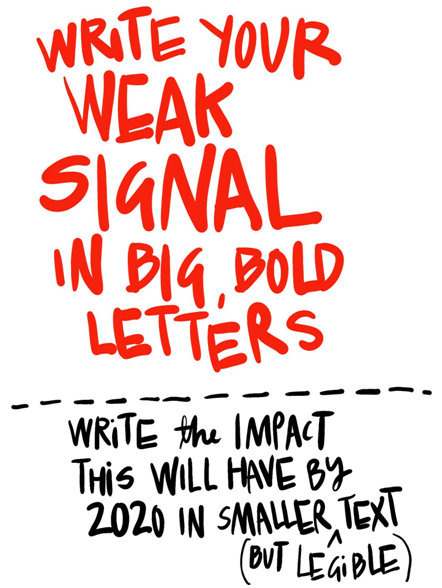 WRITE YOUR
WEAK
SIGNAL
IN BIG, BOLD
LETTERS
WRITE the IMPACT
THIS WILL HAVE BY
2020 IN SMALLER TEXT
(BUT LEGIBLE)